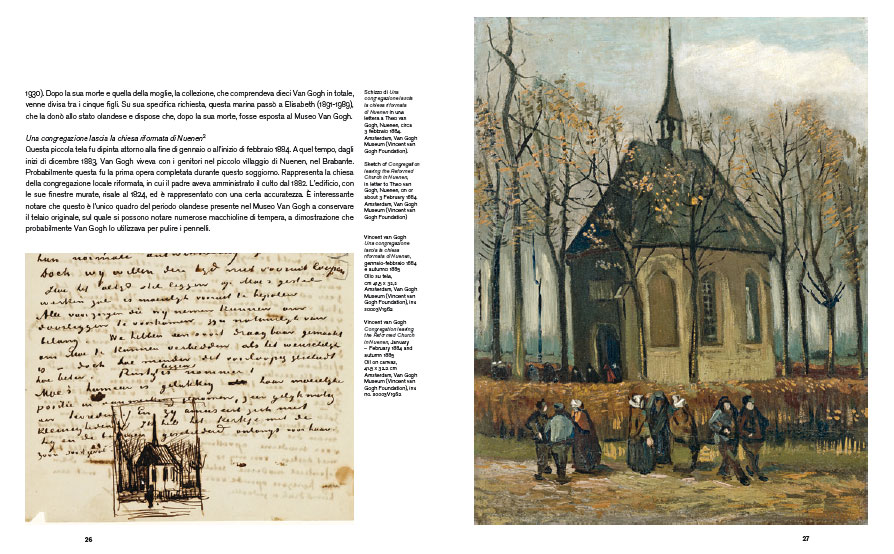 1930). Dopo la sua morte e quella della moglie, la collezione, che comprendeva dieci Van Gogh in totale,
venne divisa tra i cinque figli. Su sua specifica richiesta, questa marina passò a Elisabeth (1891-1989),
che la donò allo stato olandese e dispose che, dopo la sua morte, fosse esposta al Museo Van Gogh.
Una congregazione lascia la chiesa riformata di Nuenen²
Questa piccola tela fu dipinta attorno alla fine di gennaio o all'inizio di febbraio 1884. A quel tempo, dagli
inizi di dicembre 1883, Van Gogh viveva con i genitori nel piccolo villaggio di Nuenen, nel Brabante.
Probabilmente questa fu la prima opera completata durante questo soggiorno. Rappresenta la chiesa
della congregazione locale riformata, in cui il padre aveva amministrato il culto dal 1882. L'edificio, con
le sue finestre murate, risale al 1824, ed è rappresentato con una certa accuratezza. È interessante
notare che questo è l'unico quadro del periodo olandese presente nel Museo Van Gogh a conservare
il telaio originale, sul quale si possono notare numerose macchioline di tempera, a dimostrazione che
probabilmente Van Gogh lo utilizzava per pulire i pennelli.
doch wij willen den tijd niet vooruit loopen
werken zal is moeielijk vooruit te bepalen
Alle voorzorgen die wij nemen kunnen om
doorliggen te voorkomen zijn natuurlijk van
belang. We hebben een soort draagbaar gemaakt
om Moe te kunnen verbedden als het wenschelijk
is – doch hoe minder dit voorloopig geschiedt
hoe beter.
Moe's humeur is gelukkig haar moeielijke
Schizzo di Una
congregazione lascia
la chiesa riformata
di Nuenen in una
lettera a Theo van
Gogh, Nuenen, circa
3 febbraio 1884.
Amsterdam, Van Gogh
Museum (Vincent van
Gogh Foundation).
Sketch of Congregation
leaving the Reformed
Church in Nuenen,
in letter to Theo van
Gogh, Nuenen, on or
about 3 February 1884.
Amsterdam, Van Gogh
Museum (Vincent van
Gogh Foundation)
Vincent van Gogh
Una congregazione
lascia la chiesa
riformata di Nuenen,
gennaio-febbraio 1884
e autunno 1885
Olio su tela,
cm 41,5 x 32,2
Amsterdam, Van Gogh
Museum (Vincent van
Gogh Foundation), inv.
s0003V1962
Vincent van Gogh
Congregation leaving
the Reformed Church
in Nuenen, January
– February 1884 and
autumn 1885
Oil on canvas,
41.5 x 32.2 cm
Amsterdam, Van Gogh
Museum (Vincent van
Gogh Foundation), inv.
no. s0003V1962
26
27